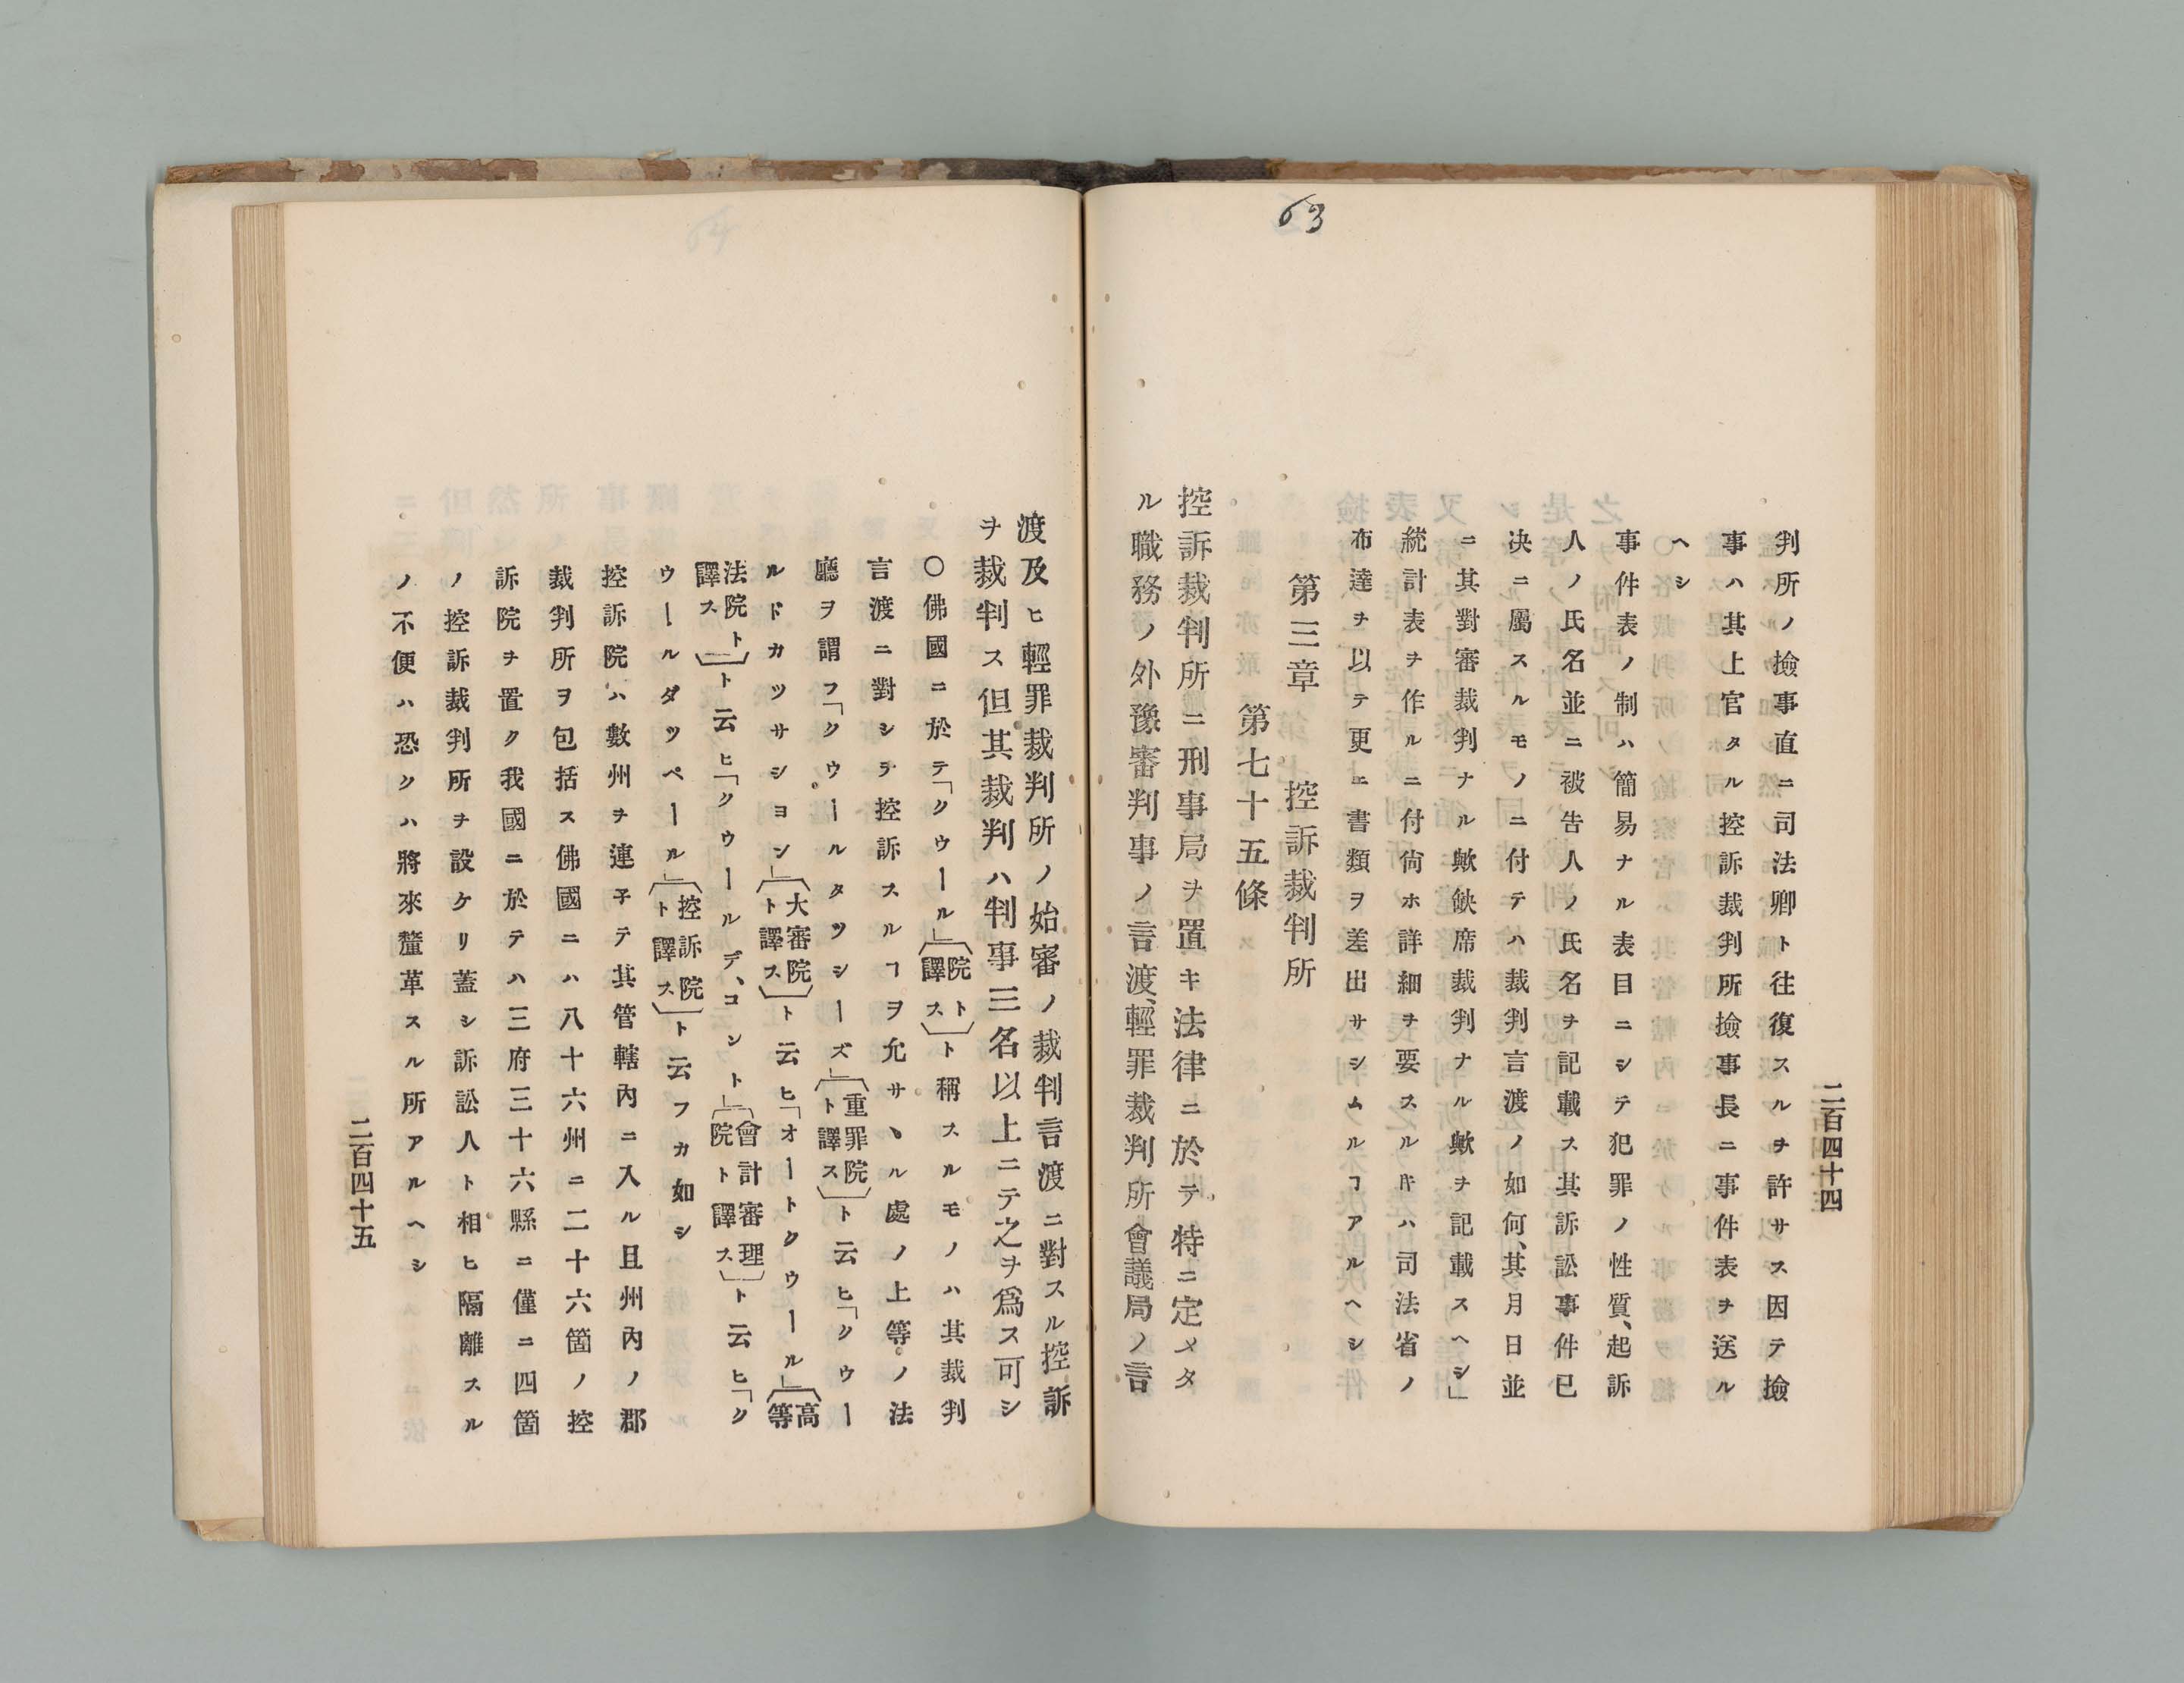 63
二百四十四
判所ノ撿事直ニ司法卿ト往復スルヲ許サス因テ撿
事ハ其上官タル控訴裁判所撿事長ニ事件表ヲ送ル
ヘシ
事件表ノ制ハ簡易ナル表目ニシテ犯罪ノ性質、起訴
人ノ氏名並ニ被告人ノ氏名ヲ記載ス其訴訟事件已
决ニ屬スルモノニ付テハ裁判言渡ノ如何、其月日並
ニ其對審裁判ナル歟缺席裁判ナル歟ヲ記載スヘシ」
統計表ヲ作ルニ付尙ホ詳細ヲ要スルㇳキハ司法省ノ
布達ヲ以テ更ニ書類ヲ差出サシムルヿアルヘシ
第三章 控訴裁判所
第七十五條
控訴裁判所ニ刑事局ヲ置キ法律ニ於テ特ニ定メタ
ル職務ノ外豫審判事ノ言渡、輕罪裁判所會議局ノ言
渡及ヒ輕罪裁判所ノ始審ノ裁判言渡ニ對スル控訴
ヲ裁判ス但其裁判ハ判事三名以上ニテ之ヲ爲ス可シ
〇佛國ニ於テ「クウール」〔院ト譯ス〕ト稱スルモノハ其裁判
言渡ニ對シテ控訴スルヿヲ允サヽル處ノ上等ノ法
廳ヲ謂フ「クウールタッシーズ」〔重罪院ト譯ス〕ト云ヒ「クウー
ルドカッサシヨン」〔大審院ト譯ス〕ト云ヒ「オートクウール」〔高等
法院ト譯ス〕ト云ヒ「クウールデ、コント」〔會計審理院ト譯ス〕ト云ヒ「ク
ウールダッペール」〔控訴院ト譯ス〕ト云フカ如シ
控訴院ハ數州ヲ連子テ其管轄內ニ入ル且州內ノ郡
裁判所ヲ包括ス佛國ニハ八十六州ニ二十六箇ノ控
訴院ヲ置ク我國ニ於テハ三府三十六縣ニ僅ニ四箇
ノ控訴裁判所ヲ設ケリ蓋シ訴訟人ト相ヒ隔離スル
ノ不便ハ恐クハ將來釐革スル所アルヘシ
二百四十五